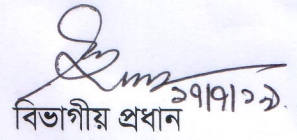 ১৭/৭/১৯
বিভাগীয় প্রধান